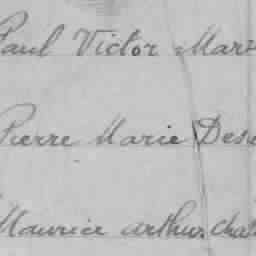 Paul Victor Mar
Pierre Marie Des
Maurice arthur Cha